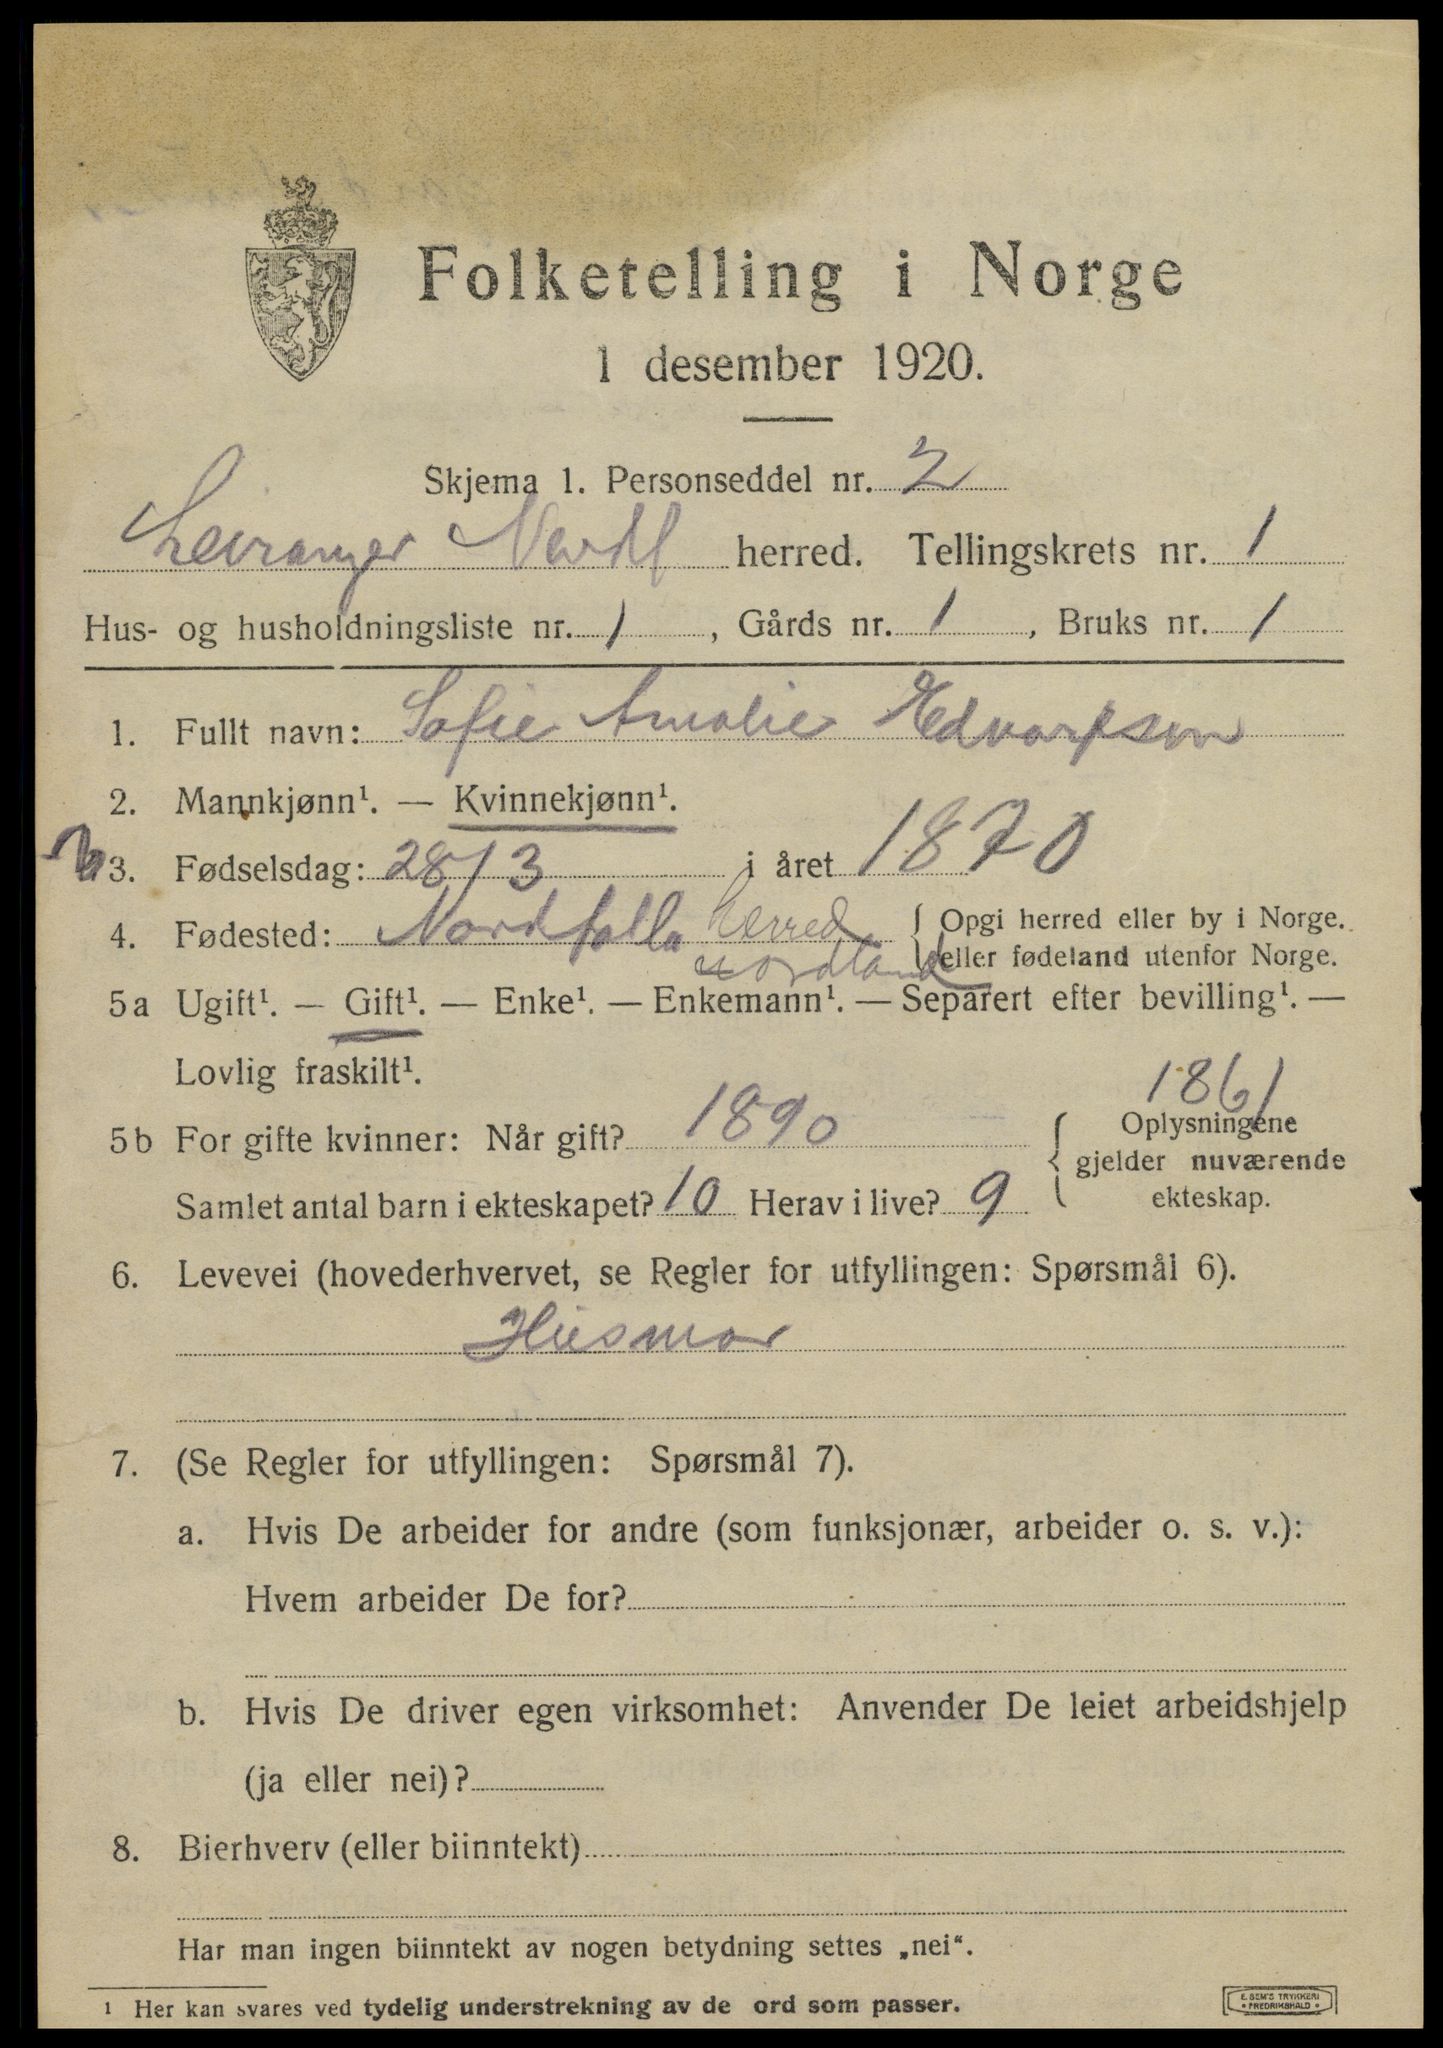 Folketelling i Norge
1 desember 1920.
Skjema 1. Personseddel nr. 2
Leiranger Nordl herred. Tellingskrets nr. 1
Hus- og husholdningsliste nr. 1, Gårds nr. 1, Bruks nr. 1
1. Fullt navn: Sofie Amalie Edvartsen
2. Mannkjønn¹. — Kvinnekjønn¹.
3. Fødselsdag: 28/3 i året 1870
4. Fødested: Nordfolla herred { Opgi herred eller by i Norge.
nordland eller fødeland utenfor Norge.
5a Ugift¹. — Gift¹. — Enke¹. — Enkemann¹. — Separert efter bevilling¹. —
Lovlig fraskilt¹.
1861
5b For gifte kvinner: Når gift? 1890 { Oplysningene
gjelder nuværende
Samlet antal barn i ekteskapet? 10 Herav i live? 9 ekteskap.
6. Levevei (hovederhvervet, se Regler for utfyllingen: Spørsmål 6).
Husmor
7. (Se Regler for utfyllingen: Spørsmål 7).
a. Hvis De arbeider for andre (som funksjonær, arbeider o. s. v.):
Hvem arbeider De for?
b. Hvis De driver egen virksomhet: Anvender De leiet arbeidshjelp
(ja eller nei)?
8. Bierhverv (eller biinntekt)
Har man ingen biinntekt av nogen betydning settes „nei“.
1 Her kan svares ved tydelig understrekning av de ord som passer.
E. SEM'S TRYKKERI
FREDRIKSHALD